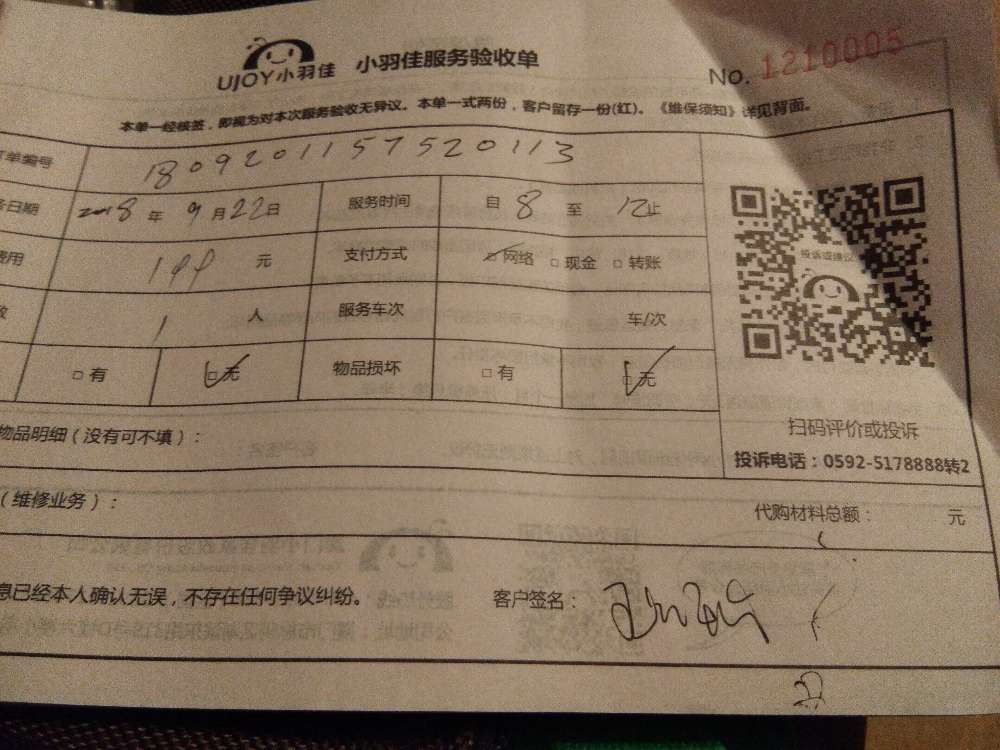 UJOY小羽佳 小羽佳服务验收单
No. 1210005
本单一经核签，即视为对本次服务验收无异议。本单一式两份，客户留存一份(红)。《维保须知》详见背面。
单编号 180920115752​0113
日期 2018 年 9 月 22 日 服务时间 自 8 至 12 止
费用 199 元 支付方式 网络 □现金 □转账
投诉或建议
1 人 服务车次 车/次
□有 □无 物品损坏 □有 □无
扫码评价或投诉
物品明细（没有可不填）：
投诉电话：0592-5178888转2
（维修业务）： 代购材料总额： 元
息已经本人确认无误，不存在任何争议纠纷。 客户签名：